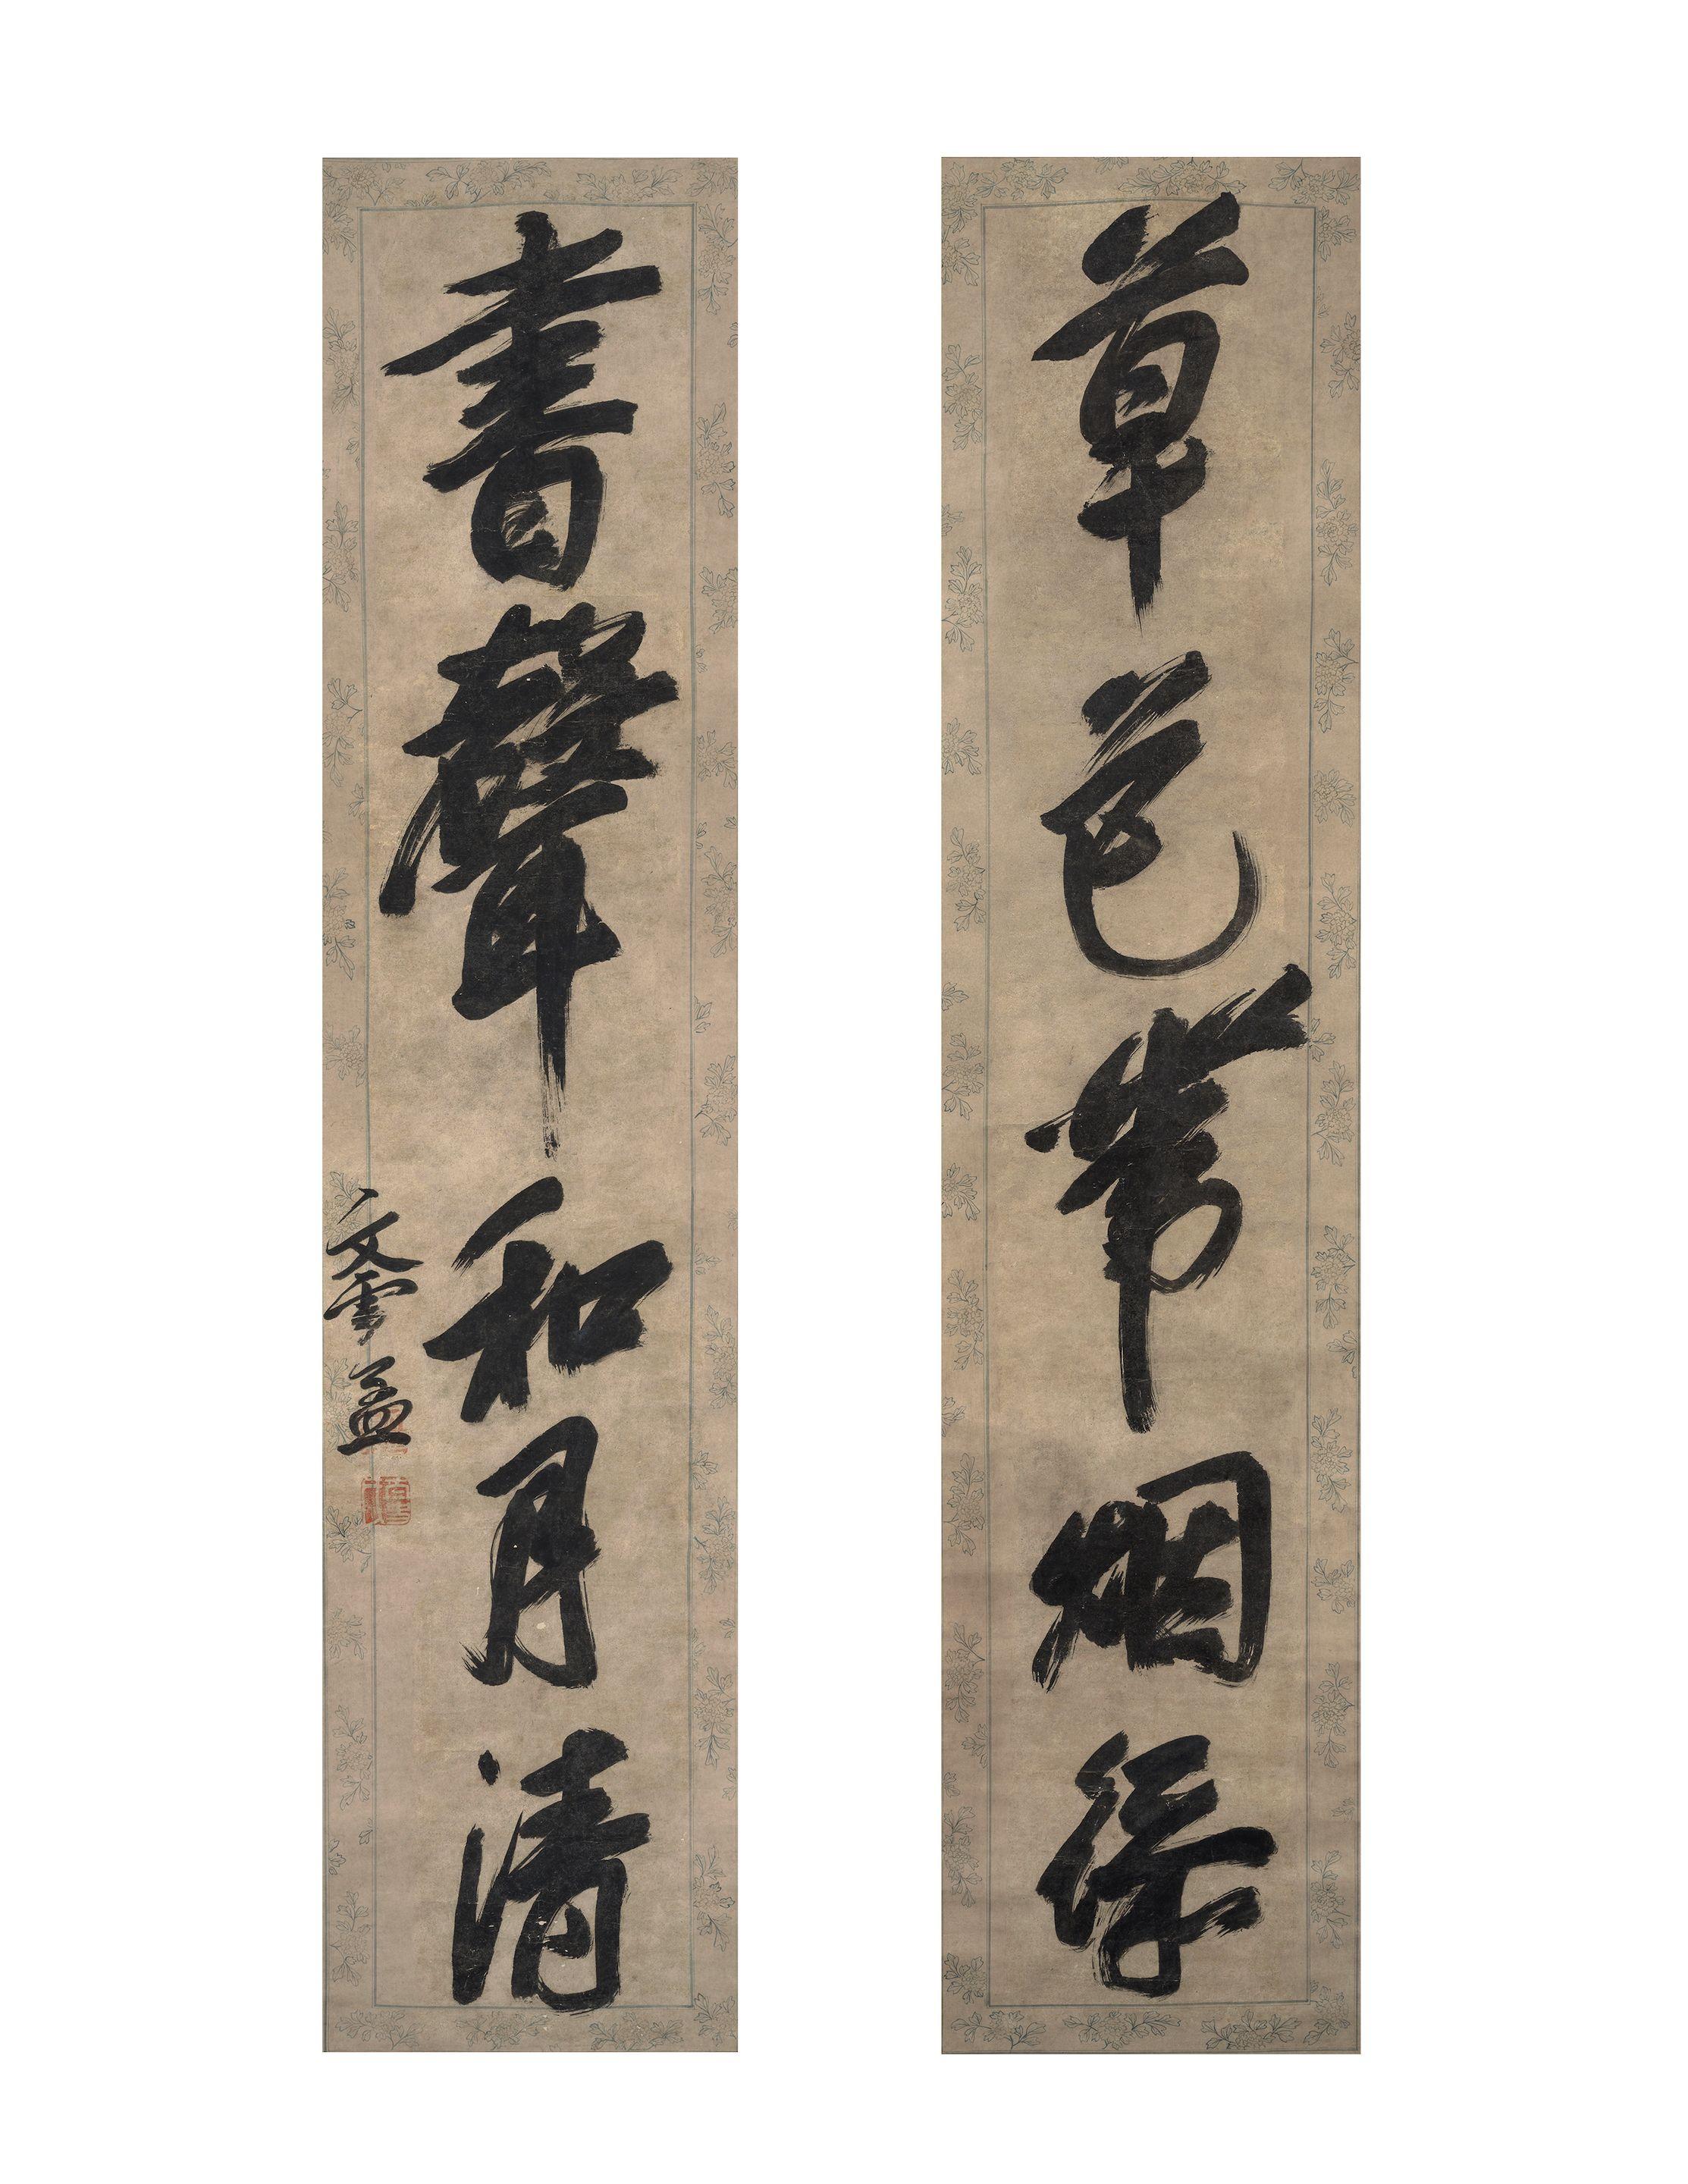 草色带烟緑
書聲和月清
文震孟